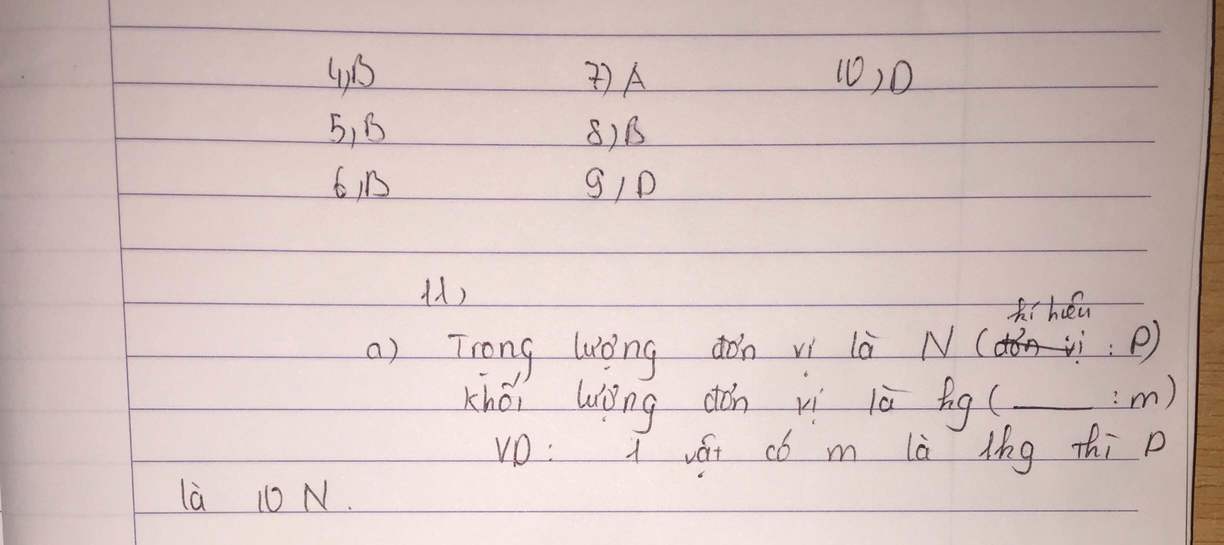 4, B 7) A 10, D
5, B 8) B
6, B 9, D
11,
kí hiệu
a) Trọng lượng đơn vị là N (đơn vị : P)
khối lượng đơn vị là kg ( ____ : m)
VD: 1 vật có m là 1kg thì P
là 10 N.